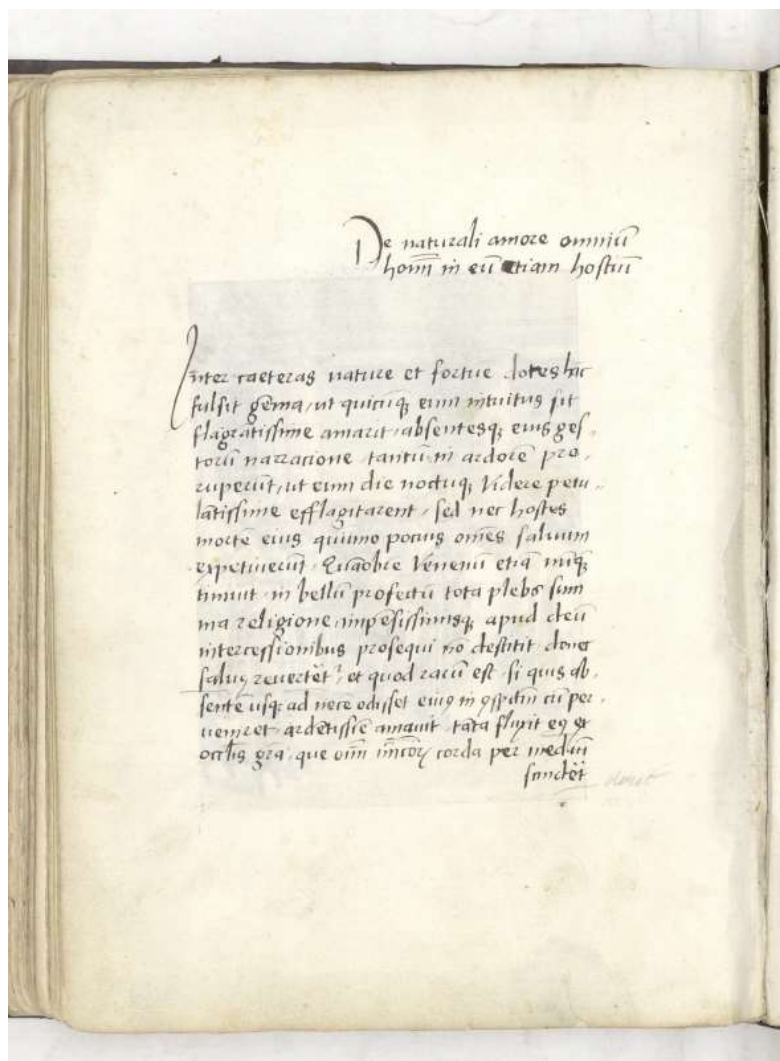 De naturali amore omniū
hoīm in eū etiam hostiū
Inter caeteras nature et fortūe dotes hęc
fulsit gēma, ut quicūq; eum intuitus sit
flagrātissime amarit, absentesq; eius ges-
torū narracione tantū in ardorē pro-
ruperūt, ut eum die noctuq; videre petu-
lātissime efflagitarent, sed nec hostes
mortē eius quiīmo pocius omēs saluum
expetiuerūt. Quāobrē Venenū etiā nūq̄
timuit, in bellū profectū tota plebs sum
ma religione, impēsissimisq; apud deū
intercessionibus prosequi nō destitit, donec
saluꝰ reuertēt᷑, et quod rarū est, si quis ab-
sente usq; ad necē odisset eiꝰ in ꝯspctū cū per-
ueniret, ardētissīe amauit, tāta fluxit eꝰ ex
occl̄is grā, que oīm īmicoꝝ corda per mediū
scindēt
donec